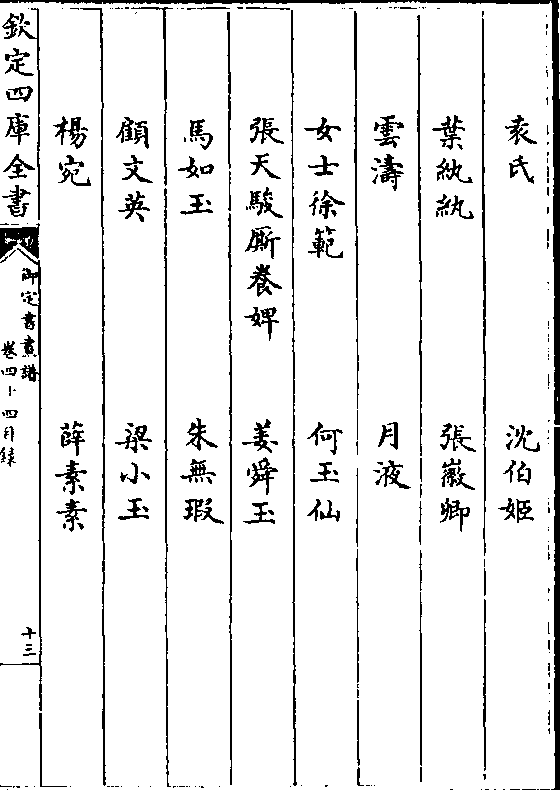 袁氏　沈伯姬
葉紈紈　張嶶卿
雲濤　月液
女士徐範　何玉仙
張天駿厮養婢　姜舜玉
馬如玉　朱無瑕
顧文英　梁小玉
楊宛　薛素素
欽定四庫全書
御定書畫譜
卷四十四目録
十三